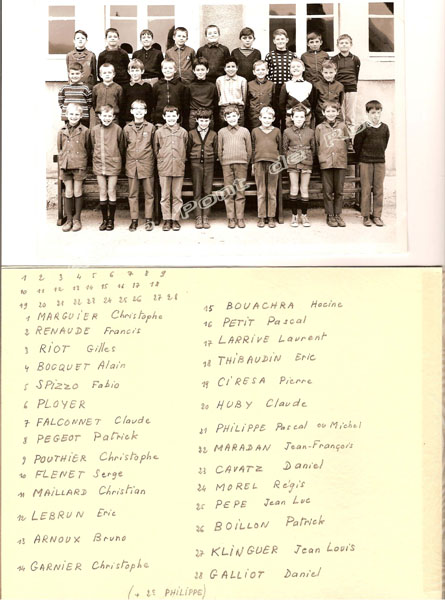 à Pont de R
1 2 3 4 5 6 7 8 9
10 11 12 13 14 15 16 17 18
19 20 21 22 23 24 25 26 27 28
1 MARGUIER Christophe
2 RENAUDE Francis
3 RIOT Gilles
4 BOCQUET Alain
5 SPIZZO Fabio
6 PLOYER
7 FALCONNET Claude
8 PEGEOT Patrick
9 POUTHIER Christophe
10 FLENET Serge
11 MAILLARD Christian
12 LEBRUN Eric
13 ARNOUX Bruno
14 GARNIER Christophe
15 BOUACHRA Hocine
16 PETIT Pascal
17 LARRIVE Laurent
18 THIBAUDIN Eric
19 CIRESA Pierre
20 HUBY Claude
21 PHILIPPE Pascal ou Michel
22 MARADAN Jean-François
23 CAVATZ Daniel
24 MOREL Régis
25 PEPE Jean Luc
26 BOILLON Patrick
27 KLINGUER Jean Louis
28 GALLIOT Daniel
(+ 2è PHILIPPE)